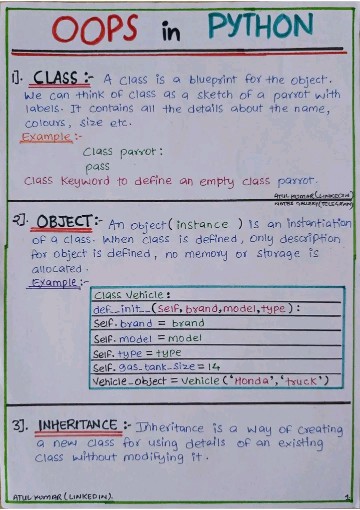 OOPS in PYTHON
1]. CLASS :- A class is a blueprint for the object.
We can think of class as a sketch of a parrot with
labels. It contains all the details about the name,
colours, size etc.
Example :-
Class parrot :
pass
Class Keyword to define an empty class parrot.
ATUL KUMAR (LINKEDIN)
NOTES GALLERY (TELEGRAM)
2]. OBJECT :- An object (instance) is an instantiation
of a class. When class is defined, only description
for object is defined, no memory or storage is
allocated.
Example :-
Class Vehicle :
def_init_(Self, brand, model, type) :
Self. brand = brand
Self. model = model
Self. type = type
Self. gas_tank_size = 14
Vehicle_object = Vehicle ('Honda', 'truck')
3]. INHERITANCE :- Inheritance is a way of creating
a new class for using details of an existing
class without modifying it.
ATUL KUMAR (LINKEDIN).
1